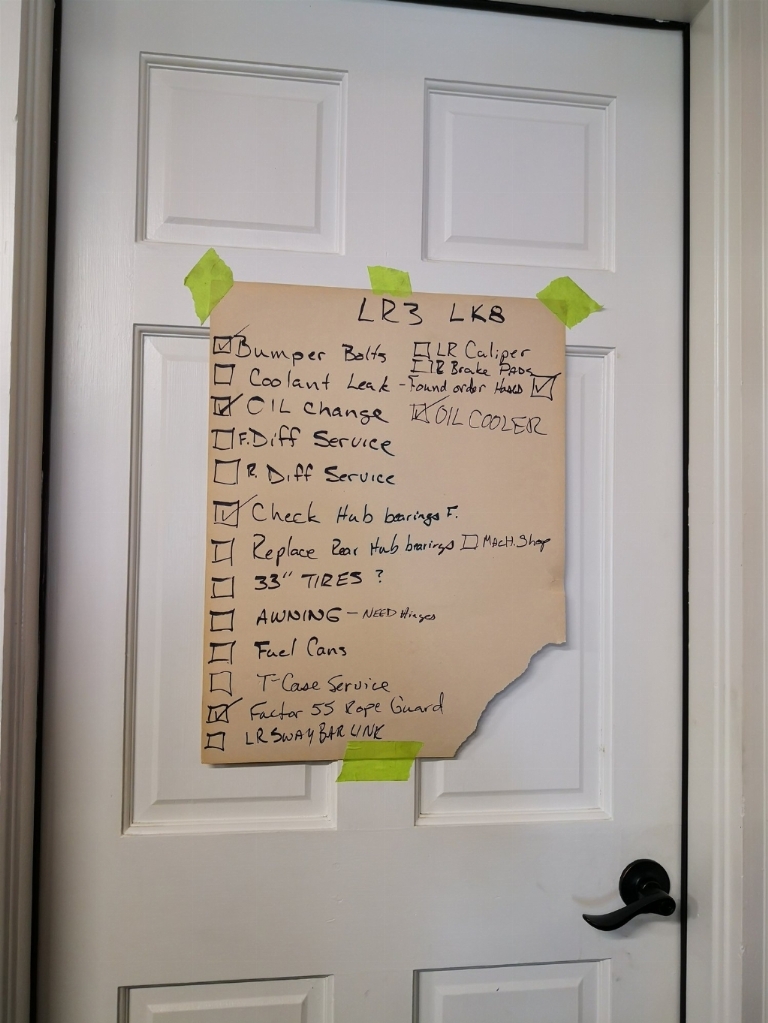 LR3 LK8
☑ Bumper Bolts
☐ LR Caliper
☐ Brake PADS
☐ Coolant Leak - Found order Hoses ☑
☑ OIL Change
☑ OIL COOLER
☐ F. Diff Service
☐ R. Diff Service
☑ Check Hub bearings F.
☐ Replace Rear Hub bearings ☐ MACH. Shop
☐ 33" TIRES ?
☐ AWNING - NEED Hinges
☐ Fuel Cans
☐ T-Case Service
☑ Factor 55 Rope Guard
☐ LR SWAY BAR LINK